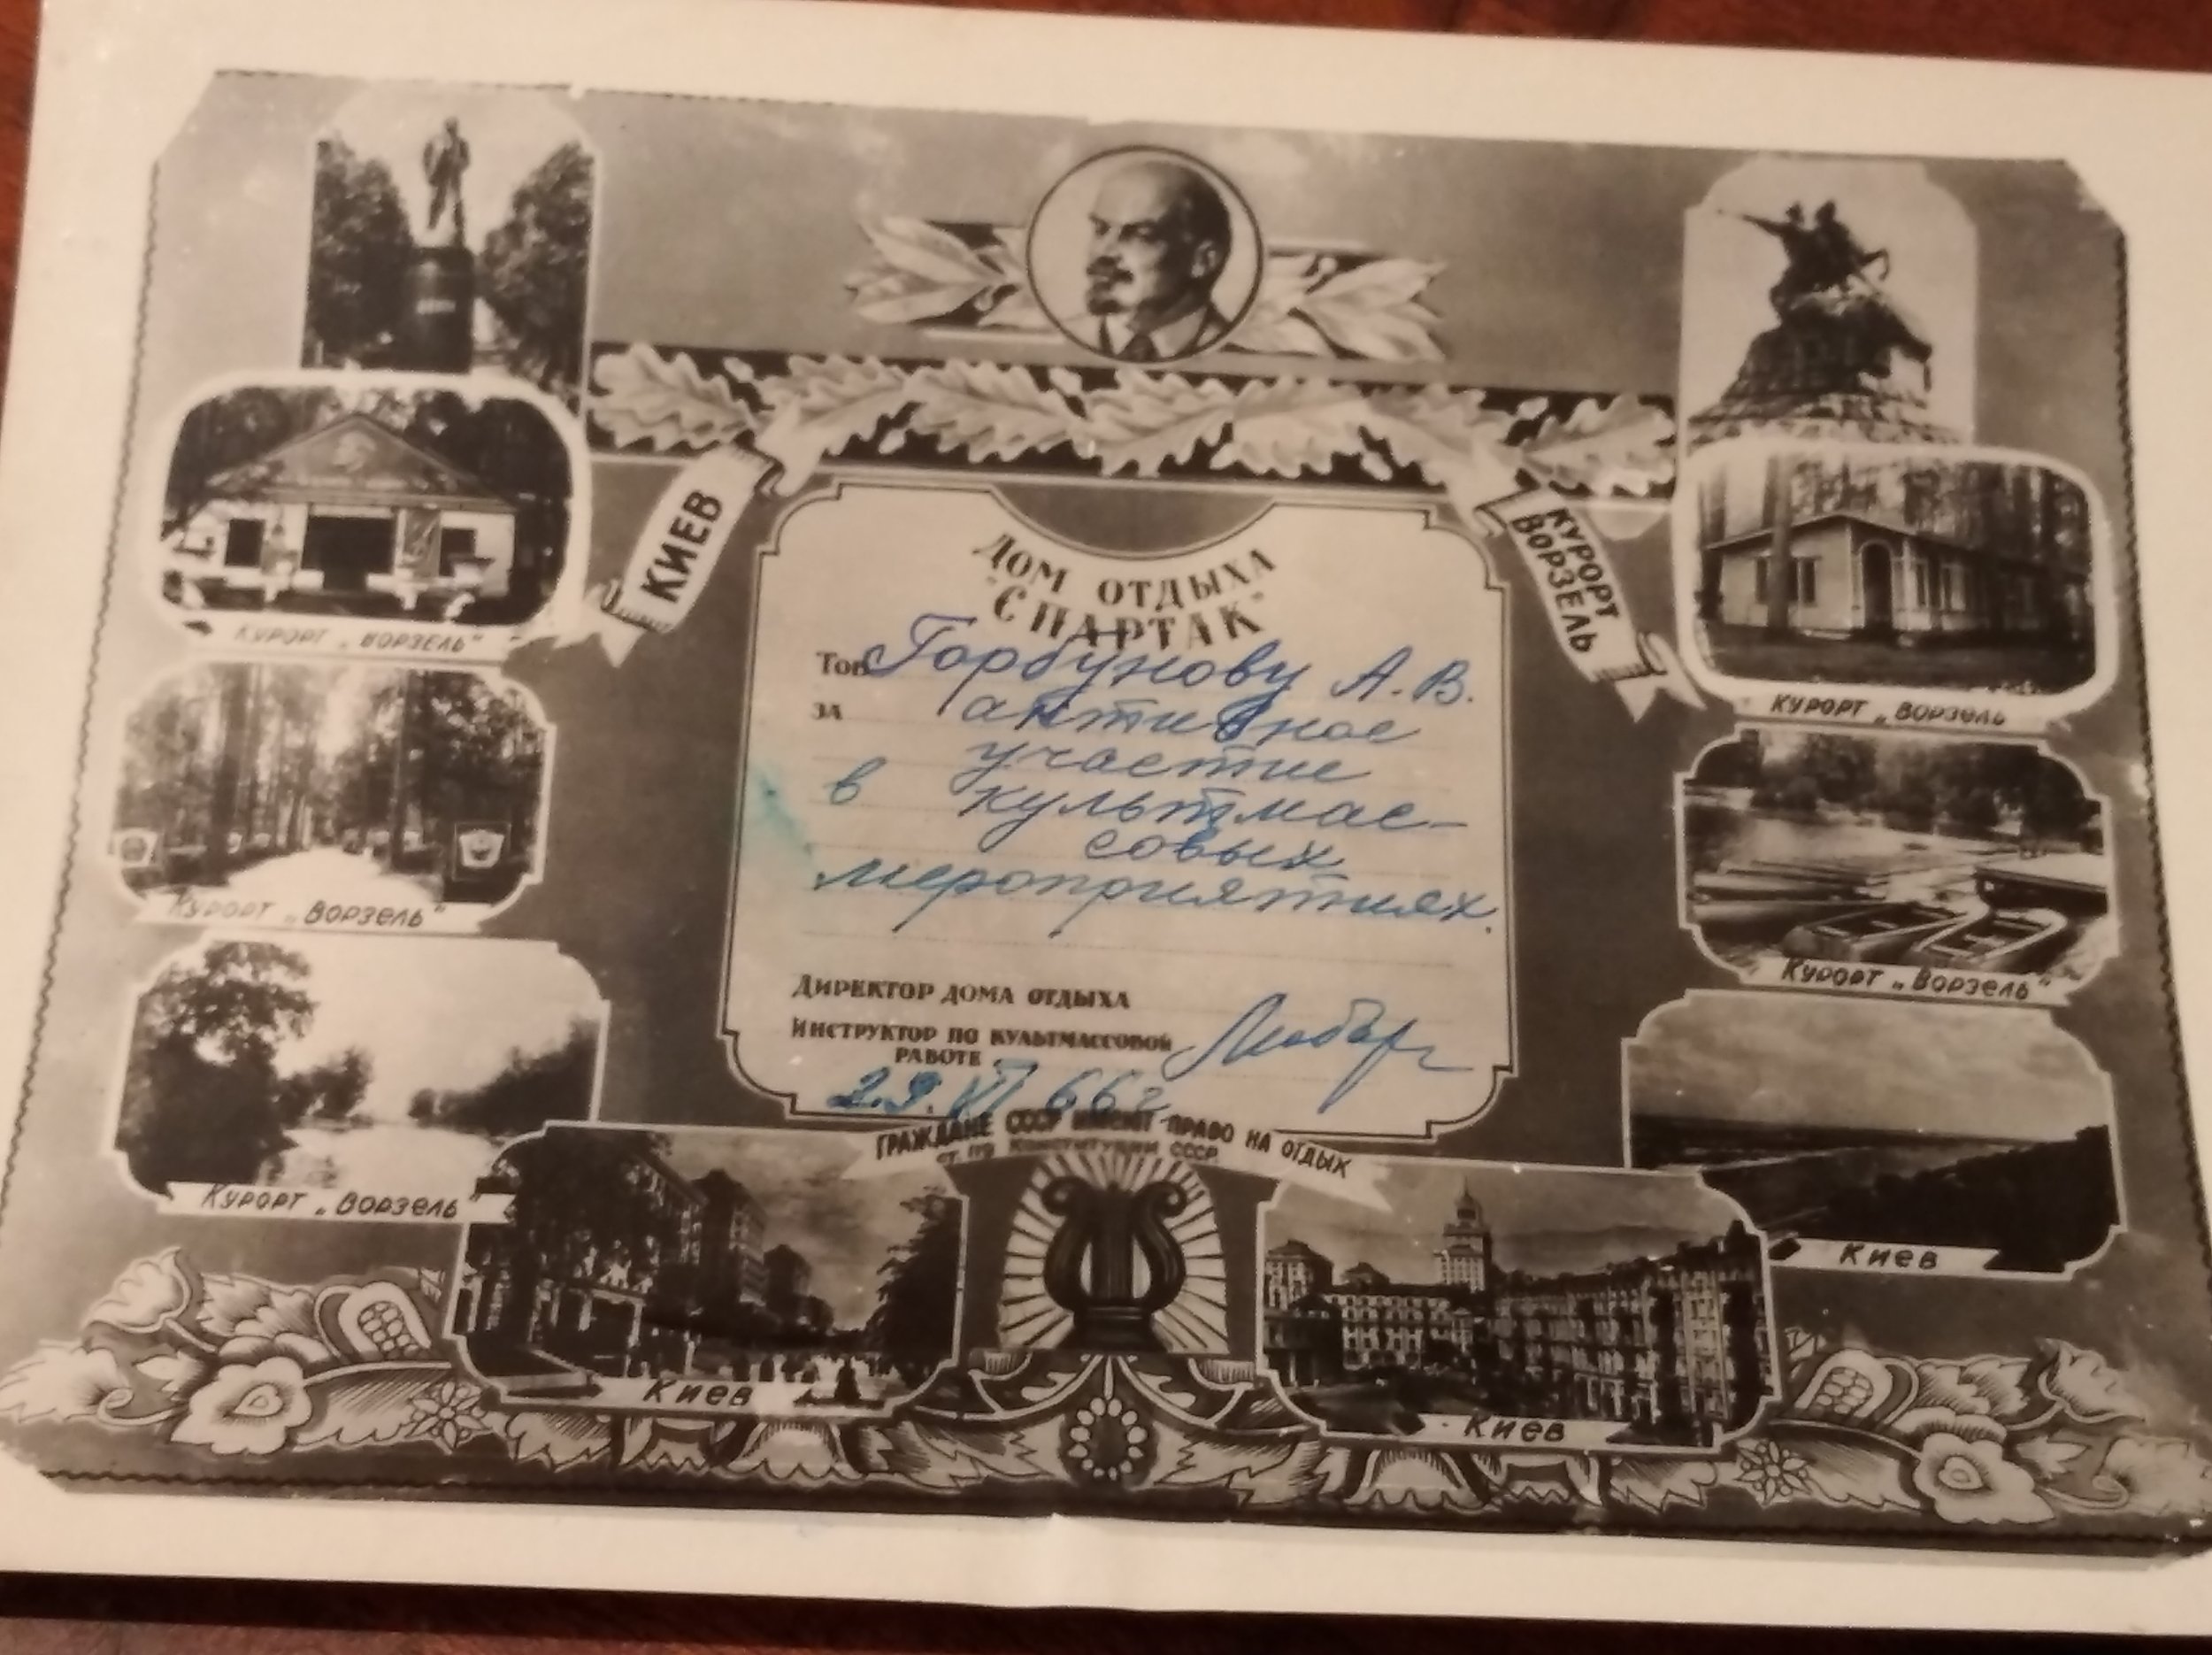 КИЕВ
КУРОРТ
ВОРЗЕЛЬ
ДОМ ОТДЫХА
"СПАРТАК"
Тов. Горбунову А.В.
за активное
участие
в культмас-
совых
мероприятиях.
Директор дома отдыха
Инструктор по культмассовой
работе
29.VI 66г
ГРАЖДАНЕ СССР ИМЕЮТ ПРАВО НА ОТДЫХ
СТ. 119 КОНСТИТУЦИИ СССР
КУРОРТ „ВОРЗЕЛЬ"
КУРОРТ „ВОРЗЕЛЬ"
КУРОРТ „ВОРЗЕЛЬ"
КУРОРТ „ВОРЗЕЛЬ"
КУРОРТ „ВОРЗЕЛЬ"
Киев
Киев
Киев